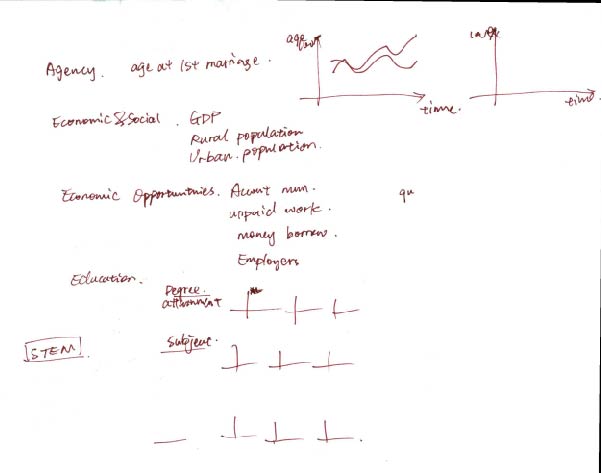 Agency. age at 1st marriage.
age
time.
time
Economic & Social. GDP
Rural population
Urban. population.
Economic Opportunities. Accont num.
unpaid work.
money borrow.
qu
Employers
Education.
Degree.
attainment
STEM.
Subject.